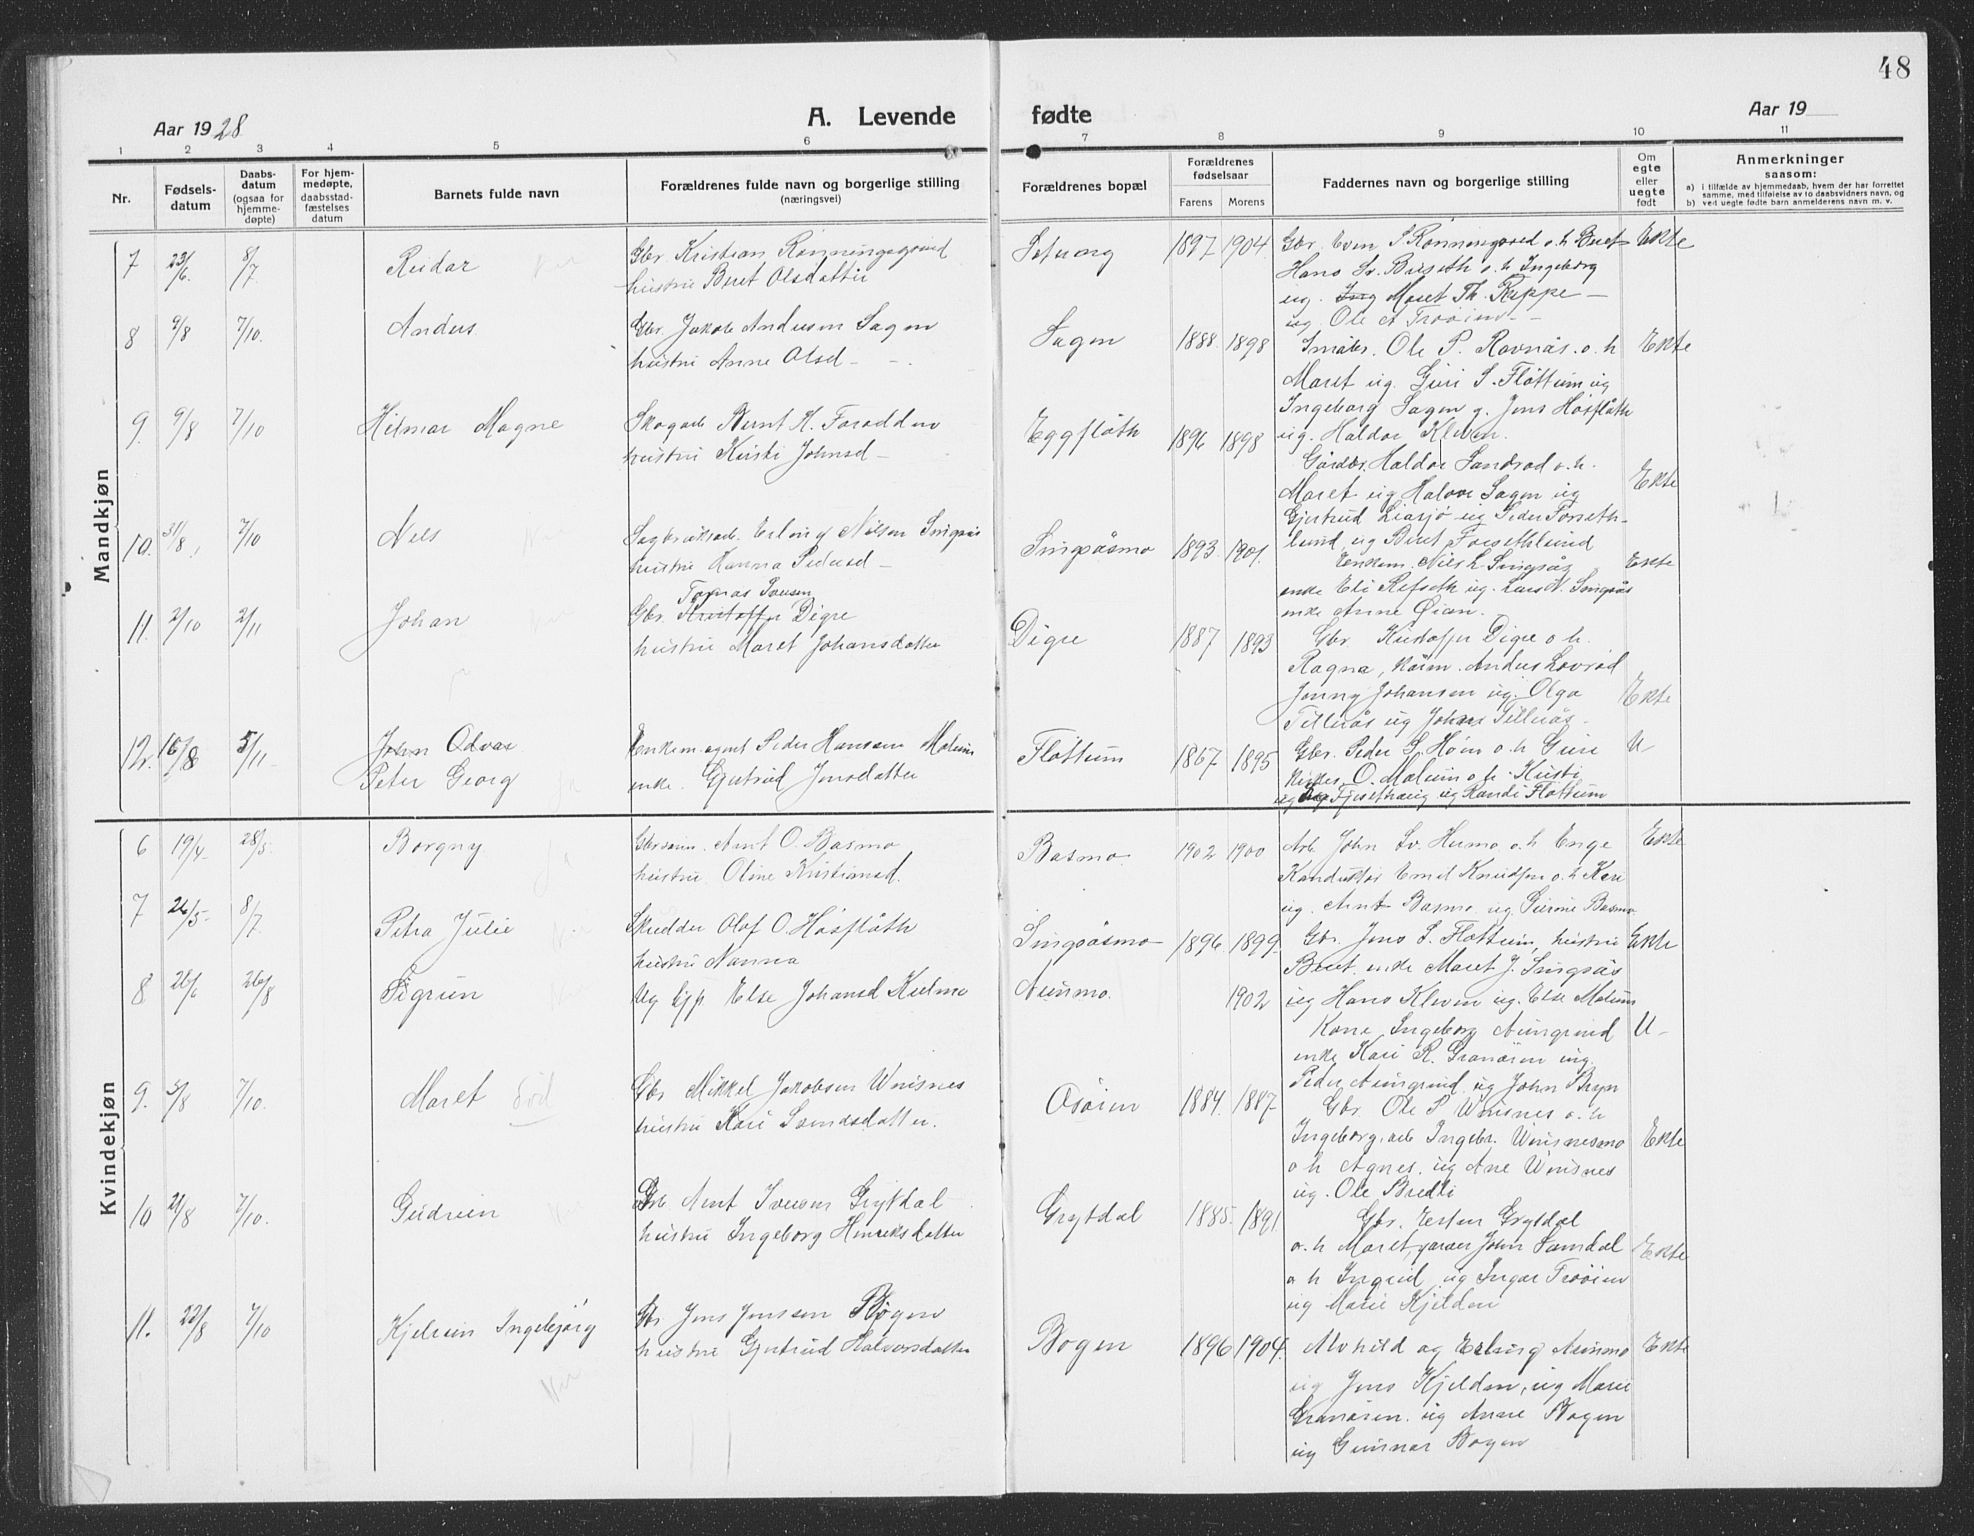 48
Aar 1928
A. Levende fødte
Aar 19
1 2 3 4 5 6 7 8 9 10 11
Nr.
Fødsels-
datum
Daabs-
datum
(ogsaa for
hjemme-
døpte)
For hjem-
medøpte,
daabsstad-
fæstelses
datum
Barnets fulde navn
Forældrenes fulde navn og borgerlige stilling
(næringsvei)
Forældrenes bopæl
Forældrenes
fødselsaar
Farens Morens
Faddernes navn og borgerlige stilling
Om
egte
eller
uegte
født
Anmerkninger
saasom:
a) i tilfælde av hjemmedaab, hvem der har forrettet
samme, med tilføielse av to daabsvidners navn, og
b) ved uegte fødte barn anmelderens navn m. v.
Mandkjøn
7 23/6 8/7 Reidar
Gbr. Kristian Rønningsgrind
hustru Beret Olsdatter
1897 1904
Gbr. Even S. o. h. Beret Ekte
Hans Sv. Buseth o. h. Ingeborg
ug. Ing Maret Th. Reppe
ug. Ole A Trøøien
8 9/8 7/10. Anders
Gbr. Jakob Andersen Sagen
hustru Anne Olsd
Sagen 1888 1898
Småbr. Ole P. Ravnås o. h Ekte
Maret ug. Guri S. Fløttum ug
Ingeborg Sagen g. Jens Håsflåth
ug. Haldor Kleven.
9. 9/8 7/10 Hilmar Magne
Skogarb Bernt H. Foradden
hustru Kirsti Johnsd
Eggflåth 1896 1898
Gårdbr. Haldor Sandrød o. h. Ekte
Maret ug Halvor Sagen ug
Gjertrud Liasjø ug Peder Forseth-
lund, ug Beret Forsethlund
10. 31/8, 7/10 Nils
Sagbruksarb. Erling Nilsen Singsås
hustru Hanna Pedersd
Singsåsmo 1893 1901.
Enkem. Nils L. Singsås Ekte
enke Eli Refseth ug. Lars N. Singsås
enke Anne Øian.
11. 2/10 2/11 Johan
Tomas Iversen
Gbr. Kristoffer Digre
hustru Maret Johansdatter
Digre 1887 1893
Gbr Kristoffer Digre o. h.
Ragna, Anders Lovrød
Jenny Johansen ug. Olga Ekte
Tillerås ug Johan Tillerås.
12. 16/8 5/11 John Odvar
Peter Georg
Enkem. agent Peder Hansen Molum
enke. Gjertrud Jonsdatter
Fløttum 1867 1895
Gbr. Peder S. Høin o. h Guri U
O. Molum o. h. Kirsti
ug Randi Fløttum
Kvindekjøn
6 19/4 28/5 Borgny
Gbrsønn. Arnt O. Basmo
hustru Oline Kristiansd.
Basmo 1902 1900
Arb. John Sv. Hermo o. h Enge Ekte
Konduktør Emil Knudsen o. h Kari
ug. Arnt Basmo ug. Basmo
7 26/5 8/7. Petra Julie
Skredder Olaf O. Håsflåth
hustru Nanna
Singsåsmo 1896 1899
Gbr. Jens S. Fløttum, hustru Ekte
Beret. enke Maret J. Singsås
ug Hans Kleven ug. Else Molum
8 26/6 26/8 Sigrun
Ug Else Johansd
1902
Kone Ingeborg U
enke Kari R. Granøien ug.
Peder ug John
9. 5/8 7/10. Maret død
Gbr Mikkel Jakobsen Winsnes
hustru Kari Svendsdatter.
Osøien 1884 1887
Gbr. Ole P Winsnes o. h
Ingeborg, arb Ingebr. Winsnesmo Ekte
o h Agnes. ug Ane Winsnes
ug. Ole Bredli
10 21/8 7/10. Gudrun
Gbr. Arnt Iversen Grytdal
hustru Ingeborg Henriksdatter
Grytdal 1885 1891
Gbr. Esten Grytdal
o. h Maret, John Samdal Ekte
o h Ingrid, ug Ingar Trøøien
ug Marie Kjelden
11. 22/8 7/10 Kjelrun Ingebjørg
Gbr Jens Jenssen Bogen
hustru Gjertrud Halvorsdatter
Bogen 1896 1904.
Alvhild og Erling Aunmo Ekte
ug Jens Kjelden, ug Marie
Granøien. ug Anne Bogen
ug Gunnar Bogen